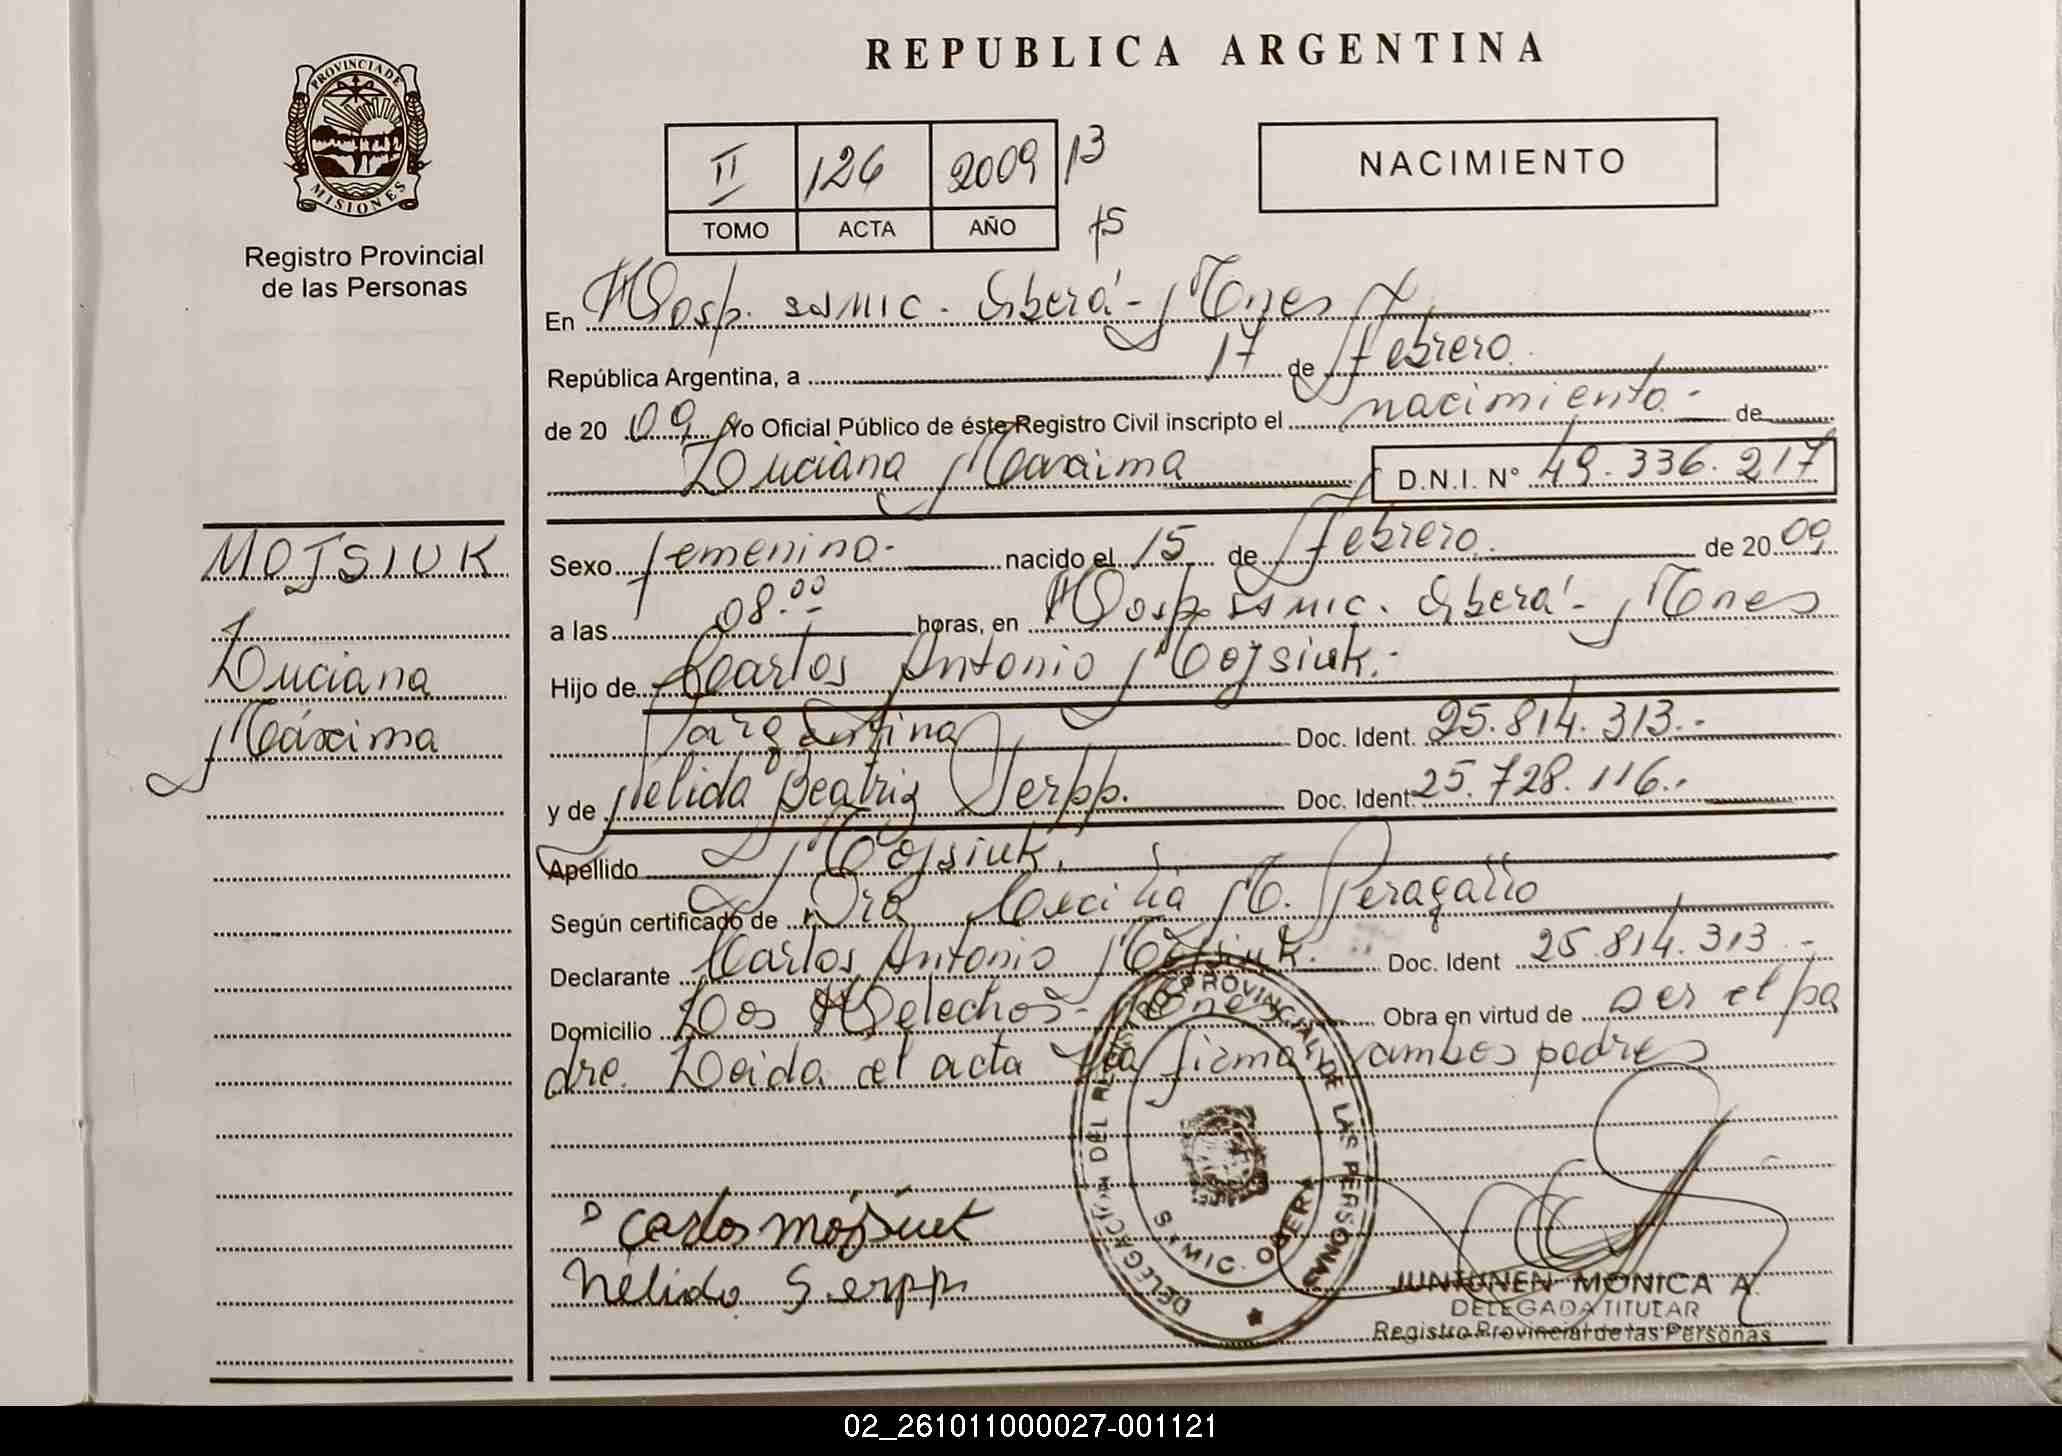 REPUBLICA ARGENTINA
PROVINCIA DE
MISIONES
Registro Provincial
de las Personas
II 126 2009 13
TOMO ACTA AÑO 15
NACIMIENTO
En Hosp. SAMIC. Oberá - Mnes
República Argentina, a 17 de Febrero
de 20 09 Yo Oficial Público de éste Registro Civil inscripto el nacimiento - de
Luciana Máxima D.N.I. N° 49.336.217
MOJSIUK
Luciana
Máxima
Sexo femenino - nacido el 15 de Febrero de 20 09
a las 08.00 horas, en Hosp. SAMIC. Oberá - Mnes
Hijo de Carlos Antonio Mojsiuk.-
argentina Doc. Ident. 25.814.313.-
y de Nélida Beatriz Serpp. Doc. Ident. 25.728.116.-
Apellido Mojsiuk.
Según certificado de Dra Cecilia M. Peragallo
Declarante Carlos Antonio Mojsiuk. Doc. Ident 25.814.313.-
Domicilio Los Helechos - Mnes Obra en virtud de ser el pa
dre. Leida el acta la firman ambos padres
Carlos Mojsiuk
Nélida Serpp
DELEGACIÓN DEL REGISTRO PROVINCIAL DE LAS PERSONAS
SAMIC. OBERA
JUNTUNEN MONICA A.
DELEGADA TITULAR
Registro Provincial de las Personas
02_261011000027-001121